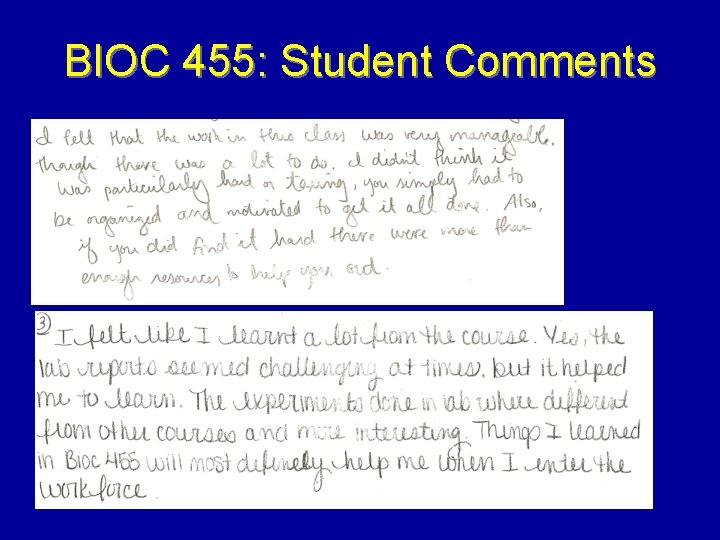 BIOC 455: Student Comments
I fell that the work in this class was very manageable.
Though there was a lot to do. I didn't think it
was particularly hard or taxing, you simply had to
be organized and motivated to get it all done. Also,
if you did find it hard there were more than
enough resources to help you out.
3) I felt like I learnt a lot from the course. Yes, the
lab reports seemed challenging at times, but it helped
me to learn. The experiments done in lab where different
from other courses and more interesting. Things I learned
in Bioc 455 will most definely help me when I enter the
workforce.